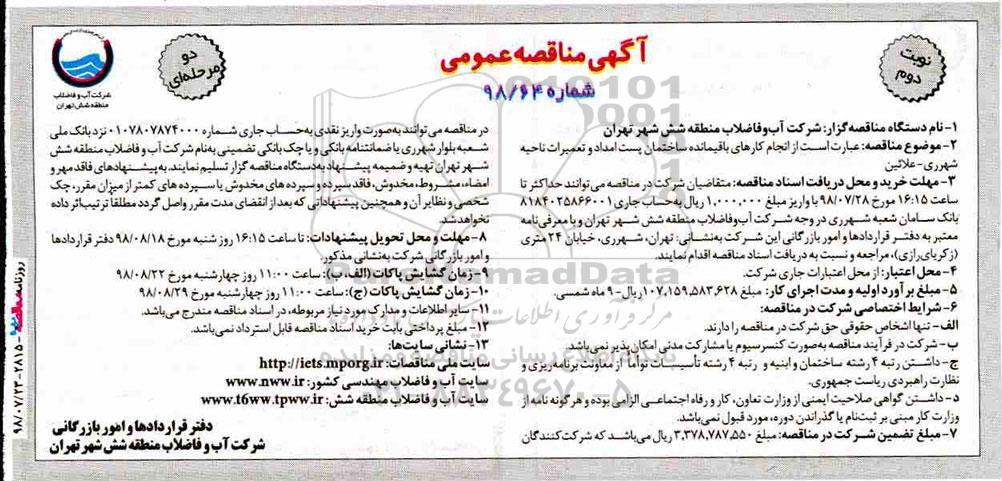 آگهی مناقصه عمومی
شماره ۹۸/۶۴
نوبت
دوم
دو
مرحله‌ای
شرکت آب و فاضلاب
منطقه شش تهران
۱- نام دستگاه مناقصه‌گزار: شرکت آب‌وفاضلاب منطقه شش شهر تهران
۲- موضوع مناقصه: عبارت است از انجام کارهای باقیمانده ساختمان پست امداد و تعمیرات ناحیه
شهرری-علائین
۳- مهلت خرید و محل دریافت اسناد مناقصه: متقاضیان شرکت در مناقصه می‌توانند حداکثر تا
ساعت ۱۶:۱۵ مورخ ۹۸/۰۷/۲۸ با واریز مبلغ ۱,۰۰۰,۰۰۰ ریال به حساب جاری ۸۱۸۴۰۲۵۸۶۶۰۰۱
بانک سامان شعبه شهرری در وجه شرکت آب‌وفاضلاب منطقه شش شهر تهران و با معرفی نامه
معتبر به دفتر قراردادها و امور بازرگانی این شرکت به‌نشانی: تهران، شهرری، خیابان ۲۴ متری
(زکریای‌رازی)، مراجعه و نسبت به دریافت اسناد مناقصه اقدام نمایند.
۴- محل اعتبار: از محل اعتبارات جاری شرکت.
۵- مبلغ برآورد اولیه و مدت اجرای کار: مبلغ ۱۰۷,۱۵۹,۵۸۳,۶۲۸ ریال- ۹ ماه شمسی.
۶- شرایط اختصاصی شرکت در مناقصه:
الف- تنها اشخاص حقوقی حق شرکت در مناقصه را دارند.
ب- شرکت در فرآیند مناقصه به‌صورت کنسرسیوم یا مشارکت مدنی امکان‌پذیر نمی‌باشد.
ج- داشتن رتبه ۴ رشته ساختمان و ابنیه و رتبه ۴ رشته تأسیسات تواماً از معاونت برنامه‌ریزی و
نظارت راهبردی ریاست جمهوری.
د- داشتن گواهی صلاحیت ایمنی از وزارت تعاون، کار و رفاه اجتماعی الزامی بوده و هرگونه نامه از
وزارت کار مبنی بر ثبت‌نام یا گذراندن دوره، مورد قبول نمی‌باشد.
۷- مبلغ تضمین شرکت در مناقصه: مبلغ ۳,۳۷۸,۷۸۷,۵۵۰ ریال می‌باشد که شرکت‌کنندگان
در مناقصه می‌توانند به‌صورت واریز نقدی به‌حساب جاری شماره ۰۱۰۷۸۰۷۸۷۴۰۰۰ نزد بانک ملی
شعبه بلوار شهرری یا ضمانتنامه بانکی و یا چک بانکی تضمینی به‌نام شرکت آب و فاضلاب منطقه شش
شهر تهران تهیه و ضمیمه پیشنهاد به‌دستگاه مناقصه گزار تسلیم نمایند. به پیشنهادهای فاقد مهر و
امضاء، مشروط، مخدوش، فاقد سپرده و سپرده های مخدوش یا سپرده های کمتر از میزان مقرر، چک
شخصی و نظایر آن و همچنین پیشنهاداتی که بعد از انقضای مدت مقرر واصل گردد مطلقاً ترتیب‌اثر داده
نخواهد شد.
۸- مهلت و محل تحویل پیشنهادات: تا ساعت ۱۶:۱۵ روز شنبه مورخ ۹۸/۰۸/۱۸ دفتر قراردادها
و امور بازرگانی شرکت به‌نشانی مذکور.
۹- زمان گشایش پاکات (الف،ب): ساعت ۱۱:۰۰ روز چهارشنبه مورخ ۹۸/۰۸/۲۲
۱۰- زمان گشایش پاکات (ج): ساعت ۱۱:۰۰ روز چهارشنبه مورخ ۹۸/۰۸/۲۹
۱۱- سایر اطلاعات و مدارک مورد نیاز مربوطه، در اسناد مناقصه مندرج می‌باشد.
۱۲- مبلغ پرداختی بابت خرید اسناد مناقصه قابل استرداد نمی‌باشد.
۱۳- نشانی سایت‌ها:
سایت ملی مناقصات: http://iets.mporg.ir
سایت آب و فاضلاب مهندسی کشور: www.nww.ir
سایت آب و فاضلاب منطقه شش: www.t6ww.tpww.ir
دفتر قراردادها و امور بازرگانی
شرکت آب و فاضلاب منطقه شش شهر تهران
ParsNamadData
۰۲۱-۸۸۳۴۹۶۷۰-۵
۹۸/۰۷/۲۳-۲۸۱۵